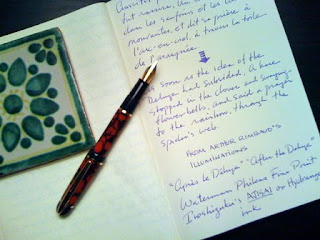 fut rassise, un
dans les sainfoins et les
mouvantes, et dit sa prière à
l'arc-en-ciel, à travers la toile
de l'araignée.
s soon as the idea of the
Deluge had subsided, A hare
stopped in the clover and swaying
flower bells, and said a prayer
to the rainbow, through the
spider's web.
FROM ARTHUR RIMBAUD'S
ILLUMINATIONS
"Après le Déluge" "After the Deluge"
Waterman Phileas Fine Point
Iroshizuku's AJISAI or Hydrangea
ink